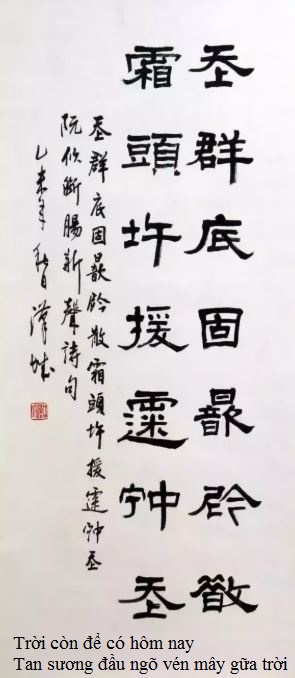 𡗶群底固散
霜頭援𩄲𡨌𡗶
𡗶群底固散霜頭援𩄲𡨌𡗶
阮攸斷腸新聲詩句
乙未年春日漢城
Trời còn để có hôm nay
Tan sương đầu ngõ vén mây gữa trời